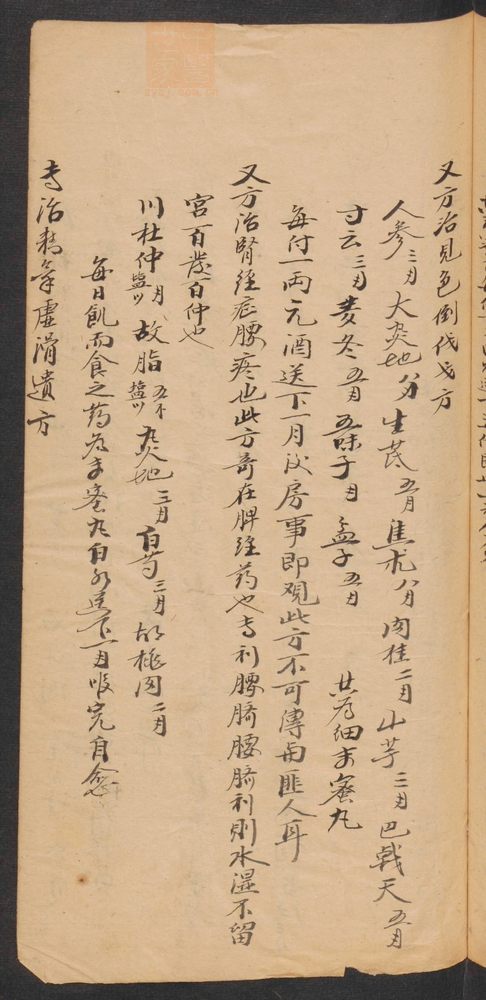 又方治見色倒伐戈方
人參三月大炙地 生芪 焦朮 肉桂二月山芋三月巴戟天五月
寸云三月麦冬五月五味子月孟子五月 共为细末蜜丸
每付一兩元酒送下一月没房事即观此方不可傳與匪人耳
又方治腎經症腰疼也此方奇在脾經药也专利腰脐腰脐利則水湿不留
宮百發百仲也
川杜仲月故脂五下 炙地三月白芍三月胡桃肉二月
每日飢而食之药为末蜜丸白水送下一月服完自愈
专治精氣虛滑遺方